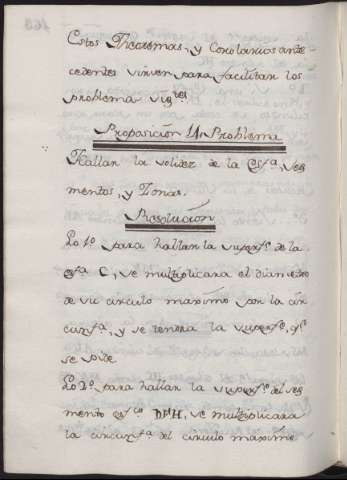 Estos Theoremas, y Corolarios ante
cedentes sirven para facilitar los
problema sig.tes
Proposición Problema
Hallar la solidez de la Esf.a, Seg
mentos, y Zonas.
Resolución
Lo 1º para hallar la superf.e de la
esf.a C, se multiplicara el diametro
de su circulo maximo por la cir
cunf.a, y se tendra la superf.e, q.e
se pide.
Lo 2º para hallar la superf.e del seg
mento esf.co DFH, se multiplicara
la circunf.a del circulo maximo